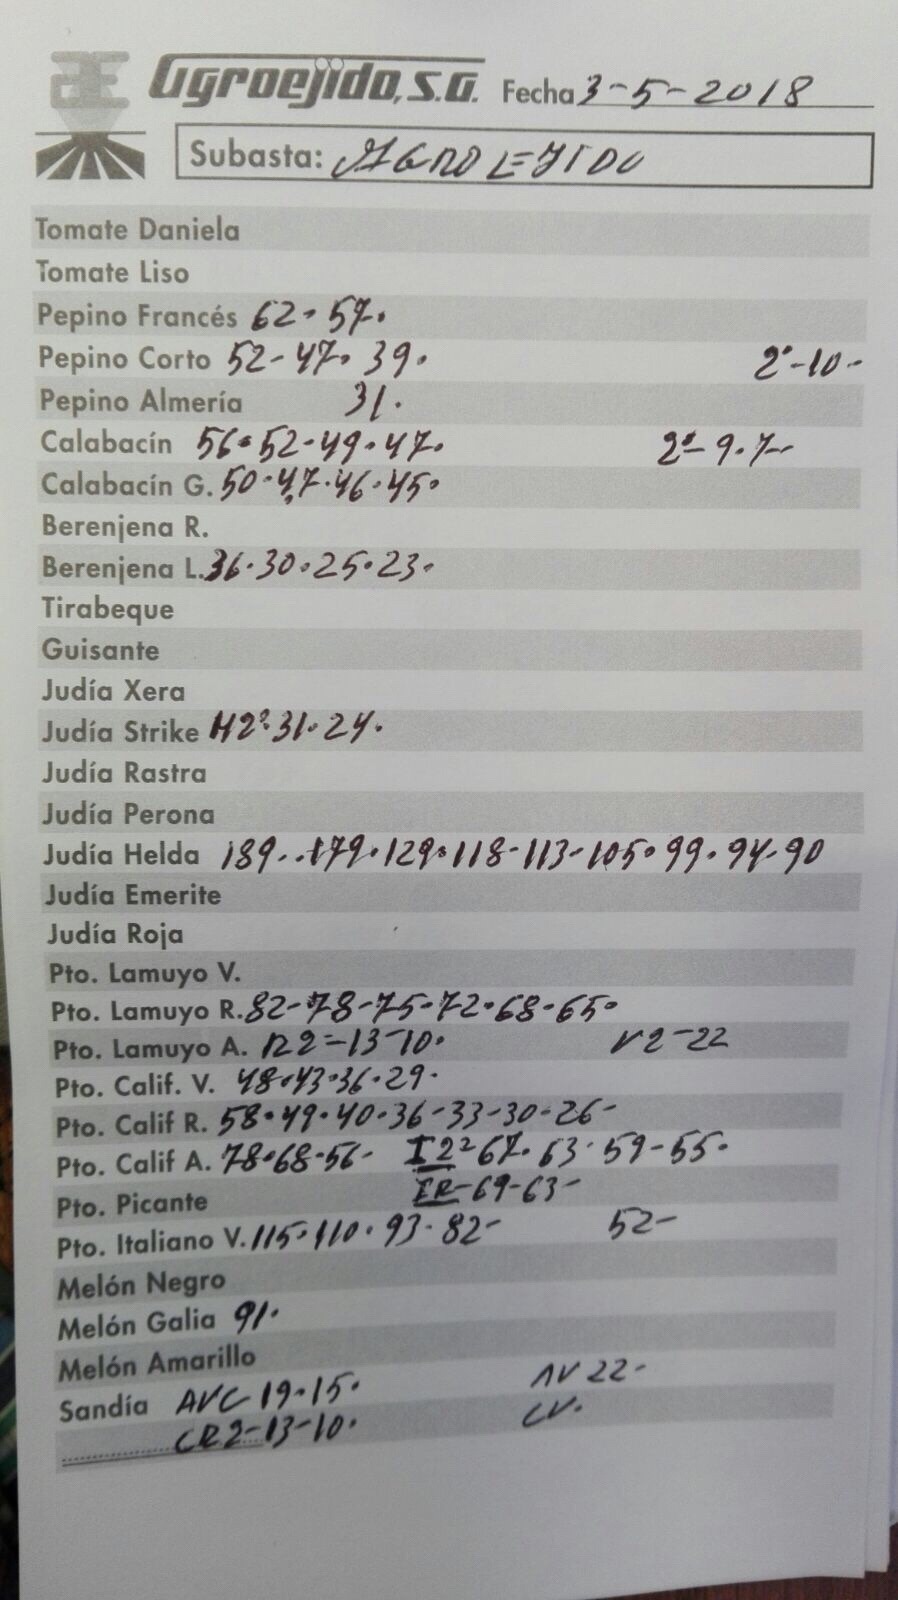 Agroejido, S.A. Fecha 3-5-2018
Subasta: AGROEJIDO
Tomate Daniela
Tomate Liso
Pepino Francés 62-57.
Pepino Corto 52-47.39. 2ª-10-
Pepino Almería 31.
Calabacín 56.52.49.47. 2ª-9.7-
Calabacín G. 50.47.46.45.
Berenjena R.
Berenjena L. 36.30.25.23.
Tirabeque
Guisante
Judía Xera
Judía Strike H2ª31.24.
Judía Rastra
Judía Perona
Judía Helda 189..179.129.118-113-105.99.94.90
Judía Emerite
Judía Roja
Pto. Lamuyo V.
Pto. Lamuyo R. 82-78-75.72.68-65.
Pto. Lamuyo A. R2=13-10. V2-22
Pto. Calif. V. 48.43.36.29.
Pto. Calif R. 58.49.40.36-33-30-26-
Pto. Calif A. 78.68.56- I2ª67.63.59-55.
Pto. Picante IR-69-63-
Pto. Italiano V. 115.110.93.82- 52-
Melón Negro
Melón Galia 91.
Melón Amarillo
Sandía AVC 19.15. AV 22-
CR2-13-10. CV.